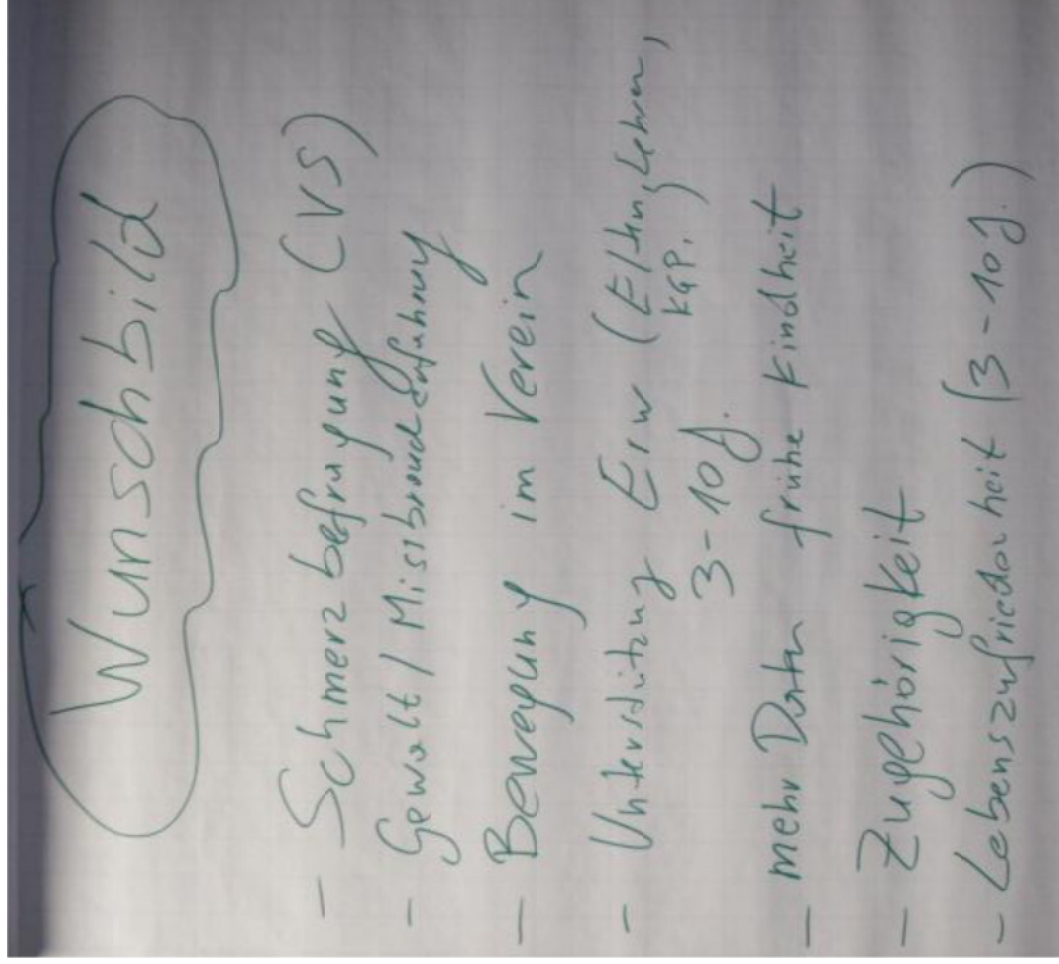 Wunschbild
- Schmerzbefragung (VS)
- Gewalt / Missbrauchserfahrung
- Bewegung im Verein
- Unterstützung Erw (Eltern, Lehrer,
KGP,
3-10 J.
- mehr Daten frühe Kindheit
- Zugehörigkeit
- Lebenszufriedenheit (3-10 J.)